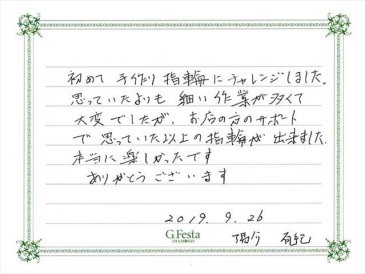 初めて 手作り 指輪にチャレンジしました。
思っていたよりも 細い 作業が多くて
大変でしたが、お店の方のサポート
で 思っていた以上の指輪が 出来ました。
本当に楽しかったです
ありがとうございます
2019. 9. 26
G.Festa
DIAMOND
有紀